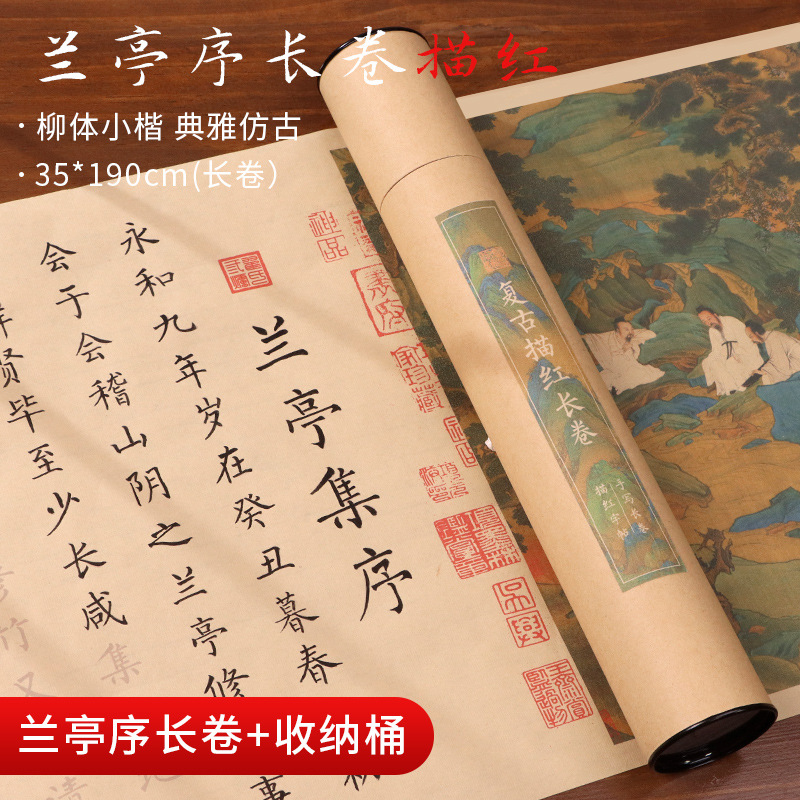 兰亭序长卷描红
·柳体小楷 典雅仿古
·35*190cm(长卷)
复古描红长卷
手写长卷
描红字帖
兰亭集序
永和九年岁在癸丑暮春
会于会稽山阴之兰亭修
贤毕至少长咸集
竹又
兰亭序长卷+收纳桶